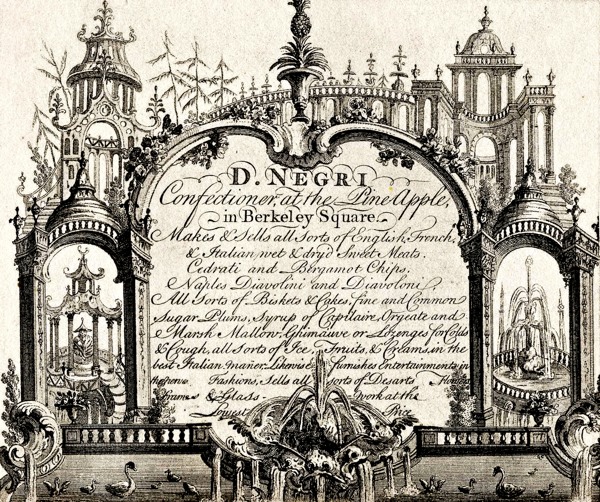 D. NEGRI
Confectioner, at the Pine Apple,
in Berkeley Square.
Makes & Sells all Sorts of English, French,
& Italian, wet & dry'd Sweet Meats.
Cedrati and Bergamot Chips.
Naples Diavolini and Diavoloni.
All Sorts of Biskets & Cakes, fine and Common
Sugar Plums, Syrup of Capilaire, Orgeate and
Marsh Mallow, Ghimauve or Lozenges for Colds
& Cough, all Sorts of Ice, Fruits, & Creams, in the
best Italian maner. Likewise furnishes Entertainments in
Fashions, Sells all sorts of Desarts Flower
Frames & Glass work at the
Lowest Price